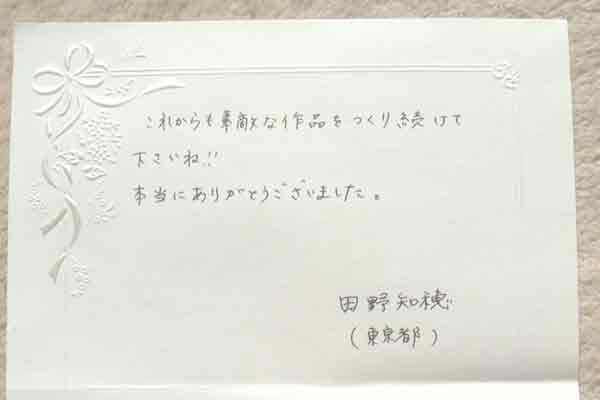 これからも素敵な作品をつくり続けて
下さいね!!
本当にありがとうございました。
田野知穂
(東京都)